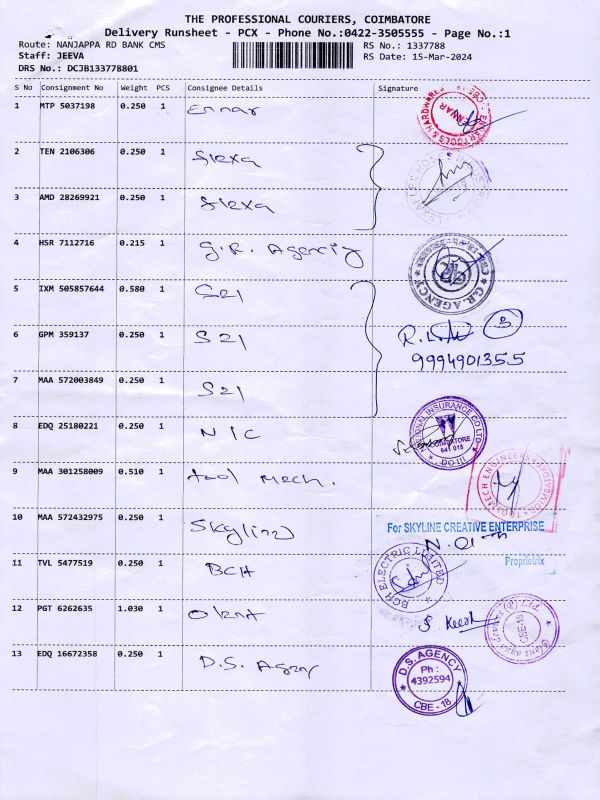 THE PROFESSIONAL COURIERS, COIMBATORE
Delivery Runsheet - PCX - Phone No.:0422-3505555 - Page No.:1
Route: NANJAPPA RD BANK CMS RS No.: 1337788
Staff: JEEVA RS Date: 15-Mar-2024
DRS No.: DCJB133778801
S No Consignment No Weight PCS Consignee Details Signature
1 MTP 5037198 0.250 1 Ennar
ENNAR TOOLS & HARDWARES
2 TEN 2106306 0.250 1 Slexa
3 AMD 28269921 0.250 1 Slexa
4 HSR 7112716 0.215 1 G.R. Agency
G.R. AGENCY
5 IXM 505857644 0.580 1 S21
6 GPM 359137 0.250 1 S21 3
9994901355
7 MAA 572003849 0.250 1 S21
8 EDQ 25180221 0.250 1 NIC
NATIONAL INSURANCE CO LTD
COIMBATORE
641 018
DO-II
9 MAA 301258009 0.510 1 tool Mech.
10 MAA 572432975 0.250 1 Skyline
For SKYLINE CREATIVE ENTERPRISE
Proprietrix
11 TVL 5477519 0.250 1 BCH
BCH ELECTRIC LIMITED
12 PGT 6262635 1.030 1
13 EDQ 16672358 0.250 1 D.S. Agency
D.S. AGENCY
Ph :
4392594
CBE - 18